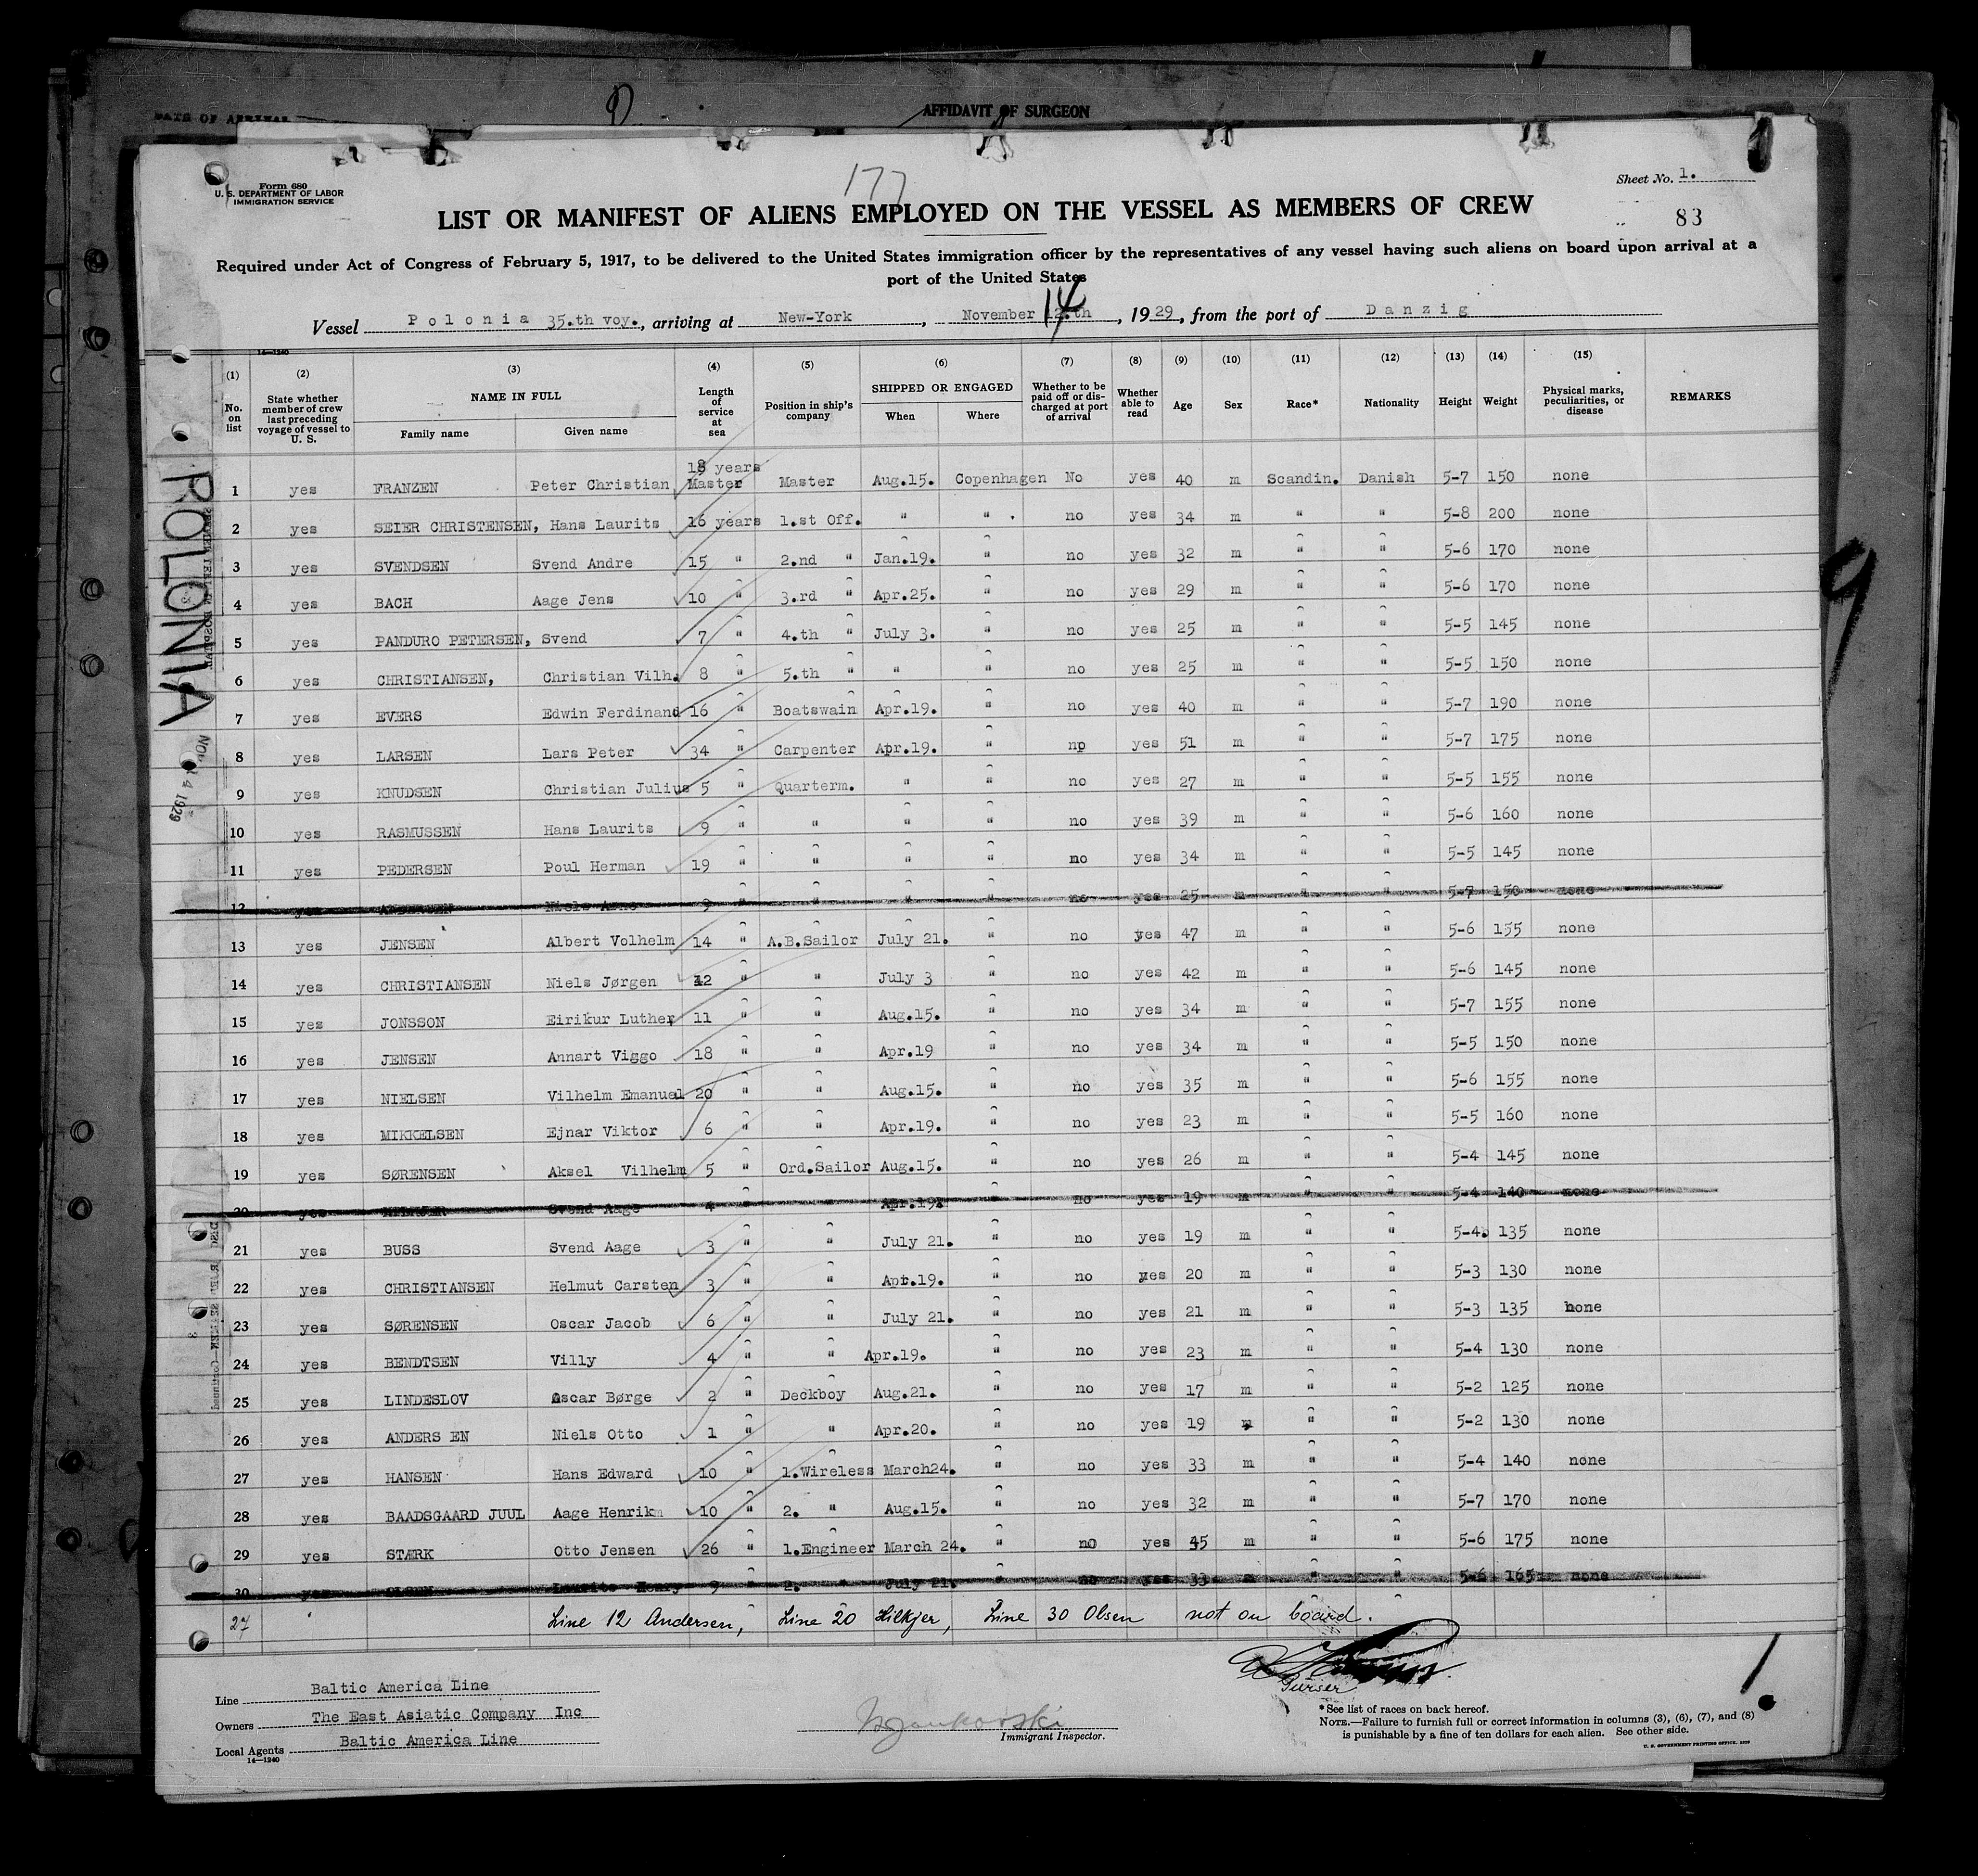 DATE OF ARRIVAL
AFFIDAVIT OF SURGEON
177
Form 680
U. S. DEPARTMENT OF LABOR
IMMIGRATION SERVICE
Sheet No. 1.
83
LIST OR MANIFEST OF ALIENS EMPLOYED ON THE VESSEL AS MEMBERS OF CREW
Required under Act of Congress of February 5, 1917, to be delivered to the United States immigration officer by the representatives of any vessel having such aliens on board upon arrival at a
port of the United States
Vessel Polonia 35.th voy., arriving at New-York, November 14 th, 1929, from the port of Danzig
14—1240
(1) (2) (3) (4) (5) (6) (7) (8) (9) (10) (11) (12) (13) (14) (15)
No. on list | State whether member of crew last preceding voyage of vessel to U. S. | NAME IN FULL | Family name | Given name | Length of service at sea | Position in ship's company | SHIPPED OR ENGAGED | When | Where | Whether to be paid off or discharged at port of arrival | Whether able to read | Age | Sex | Race* | Nationality | Height | Weight | Physical marks, peculiarities, or disease | REMARKS
1 yes FRANZEN Peter Christian 18 years Master Master Aug.15. Copenhagen No yes 40 m Scandin. Danish 5-7 150 none
2 yes SEIER CHRISTENSEN, Hans Laurits 16 years 1.st Off. " " . no yes 34 m " " 5-8 200 none
3 yes SVENDSEN Svend Andre 15 " 2.nd " Jan.19. " no yes 32 m " " 5-6 170 none
4 yes BACH Aage Jens 10 " 3.rd " Apr.25. " no yes 29 m " " 5-6 170 none
5 yes PANDURO PETERSEN, Svend 7 " 4.th " July 3. " no yes 25 m " " 5-5 145 none
6 yes CHRISTIANSEN, Christian Vilh. 8 " 5.th " " " no yes 25 m " " 5-5 150 none
7 yes EVERS Edwin Ferdinand 16 " Boatswain Apr.19. " no yes 40 m " " 5-7 190 none
8 yes LARSEN Lars Peter 34 " Carpenter Apr.19. " no yes 51 m " " 5-7 175 none
9 yes KNUDSEN Christian Julius 5 " Quarterm. " " no yes 27 m " " 5-5 155 none
10 yes RASMUSSEN Hans Laurits 9 " " " " no yes 39 m " " 5-6 160 none
11 yes PEDERSEN Poul Herman 19 " " " " no yes 34 m " " 5-5 145 none
12 yes ANDERSEN Niels 9 " " " " no yes 25 m " " 5-7 150 none
13 yes JENSEN Albert Volhelm 14 " A.B.Sailor July 21. " no yes 47 m " " 5-6 155 none
14 yes CHRISTIANSEN Niels Jørgen 12 " " July 3 " no yes 42 m " " 5-6 145 none
15 yes JONSSON Eirikur Luther 11 " " Aug.15. " no yes 34 m " " 5-7 155 none
16 yes JENSEN Annart Viggo 18 " " Apr.19 " no yes 34 m " " 5-5 150 none
17 yes NIELSEN Vilhelm Emanuel 20 " " Aug.15. " no yes 35 m " " 5-6 155 none
18 yes MIKKELSEN Ejnar Viktor 6 " " Apr.19. " no yes 23 m " " 5-5 160 none
19 yes SØRENSEN Aksel Vilhelm 5 " Ord.Sailor Aug.15. " no yes 26 m " " 5-4 145 none
20 yes Svend Aage 4 " " Apr.19. " no yes 19 m " " 5-4 140 none
21 yes BUSS Svend Aage 3 " " July 21. " no yes 19 m " " 5-4. 135 none
22 yes CHRISTIANSEN Helmut Carsten 3 " " Apr.19. " no yes 20 m " " 5-3 130 none
23 yes SØRENSEN Oscar Jacob 6 " " July 21. " no yes 21 m " " 5-3 135 none
24 yes BENDTSEN Villy 4 " " Apr.19. " no yes 23 m " " 5-4 130 none
25 yes LINDESLOV Oscar Børge 2 " Deckboy Aug.21. " no yes 17 m " " 5-2 125 none
26 yes ANDERS EN Niels Otto 1 " " Apr.20. " no yes 19 m " " 5-2 130 none
27 yes HANSEN Hans Edward 10 " 1.Wireless March24. " no yes 33 m " " 5-4 140 none
28 yes BAADSGAARD JUUL Aage Henrik 10 " 2. " Aug.15. " no yes 32 m " " 5-7 170 none
29 yes STÆRK Otto Jensen 26 " 1.Engineer March 24. " no yes 45 m " " 5-6 175 none
30 yes OLSEN Laurits Henry 9 " 2. " July 21. " no yes 33 m " " 5-6 165 none
27 Line 12 Andersen, Line 20 Hilkjer, Line 30 Olsen not on board.
Purser
POLONIA
NOV 14 1929
Line Baltic America Line
Owners The East Asiatic Company Inc
Local Agents Baltic America Line
14—1240
Immigrant Inspector.
*See list of races on back hereof.
NOTE.—Failure to furnish full or correct information in columns (3), (6), (7), and (8)
is punishable by a fine of ten dollars for each alien. See other side.
U. S. GOVERNMENT PRINTING OFFICE. 1929